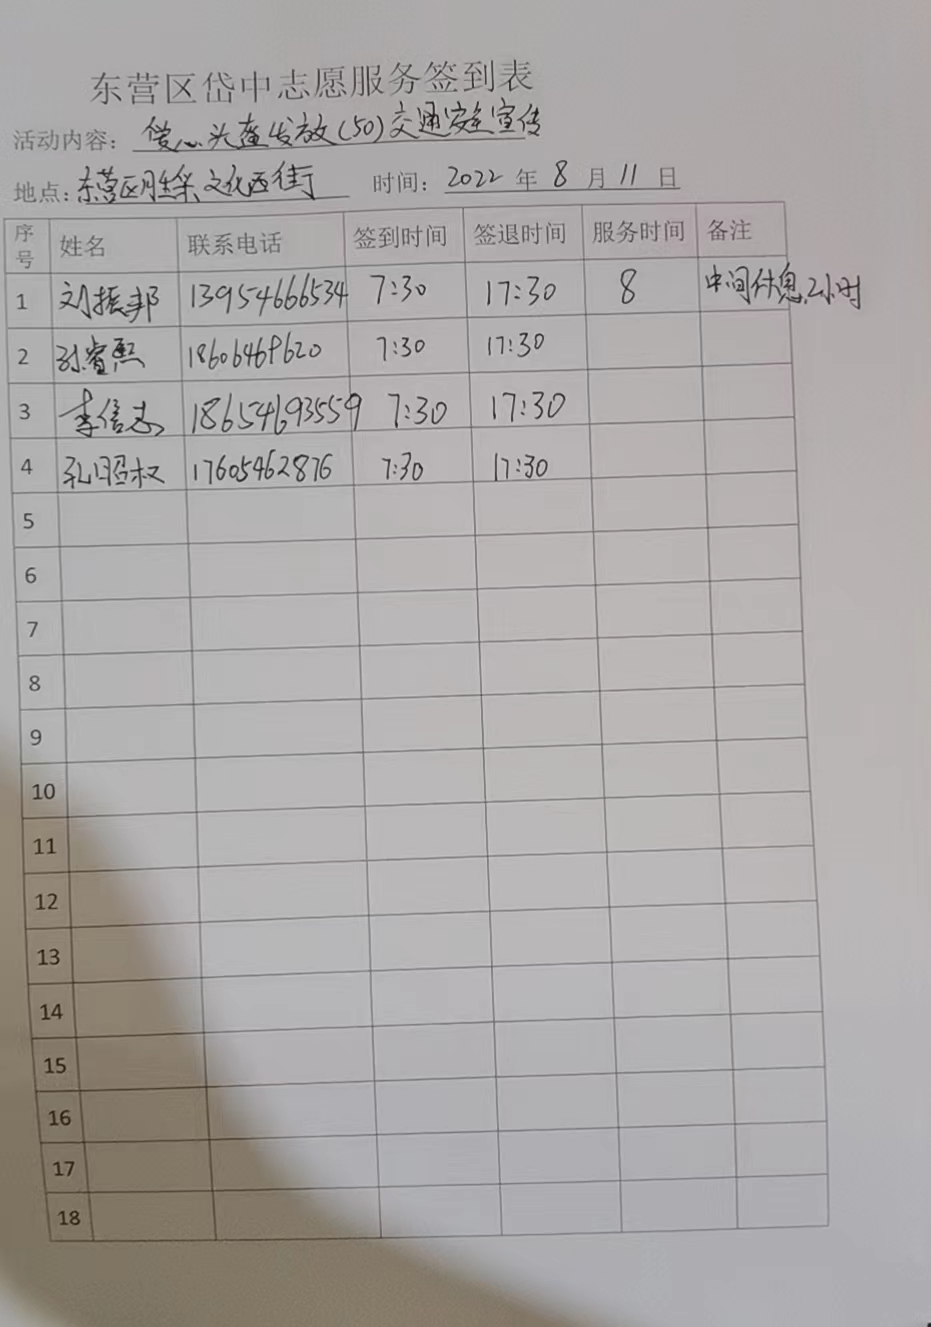 东营区岱中志愿服务签到表
活动内容: 爱心头盔发放(50)交通安全宣传
地点: 东营区胜采文化西街 时间: 2022 年 8 月 11 日
序号 姓名 联系电话 签到时间 签退时间 服务时间 备注
1 刘振邦 13954666534 7:30 17:30 8 中间休息2小时
2 孙睿熙 18606469620 7:30 17:30
3 李信志 18654693559 7:30 17:30
4 孔昭权 17605462876 7:30 17:30
5
6
7
8
9
10
11
12
13
14
15
16
17
18